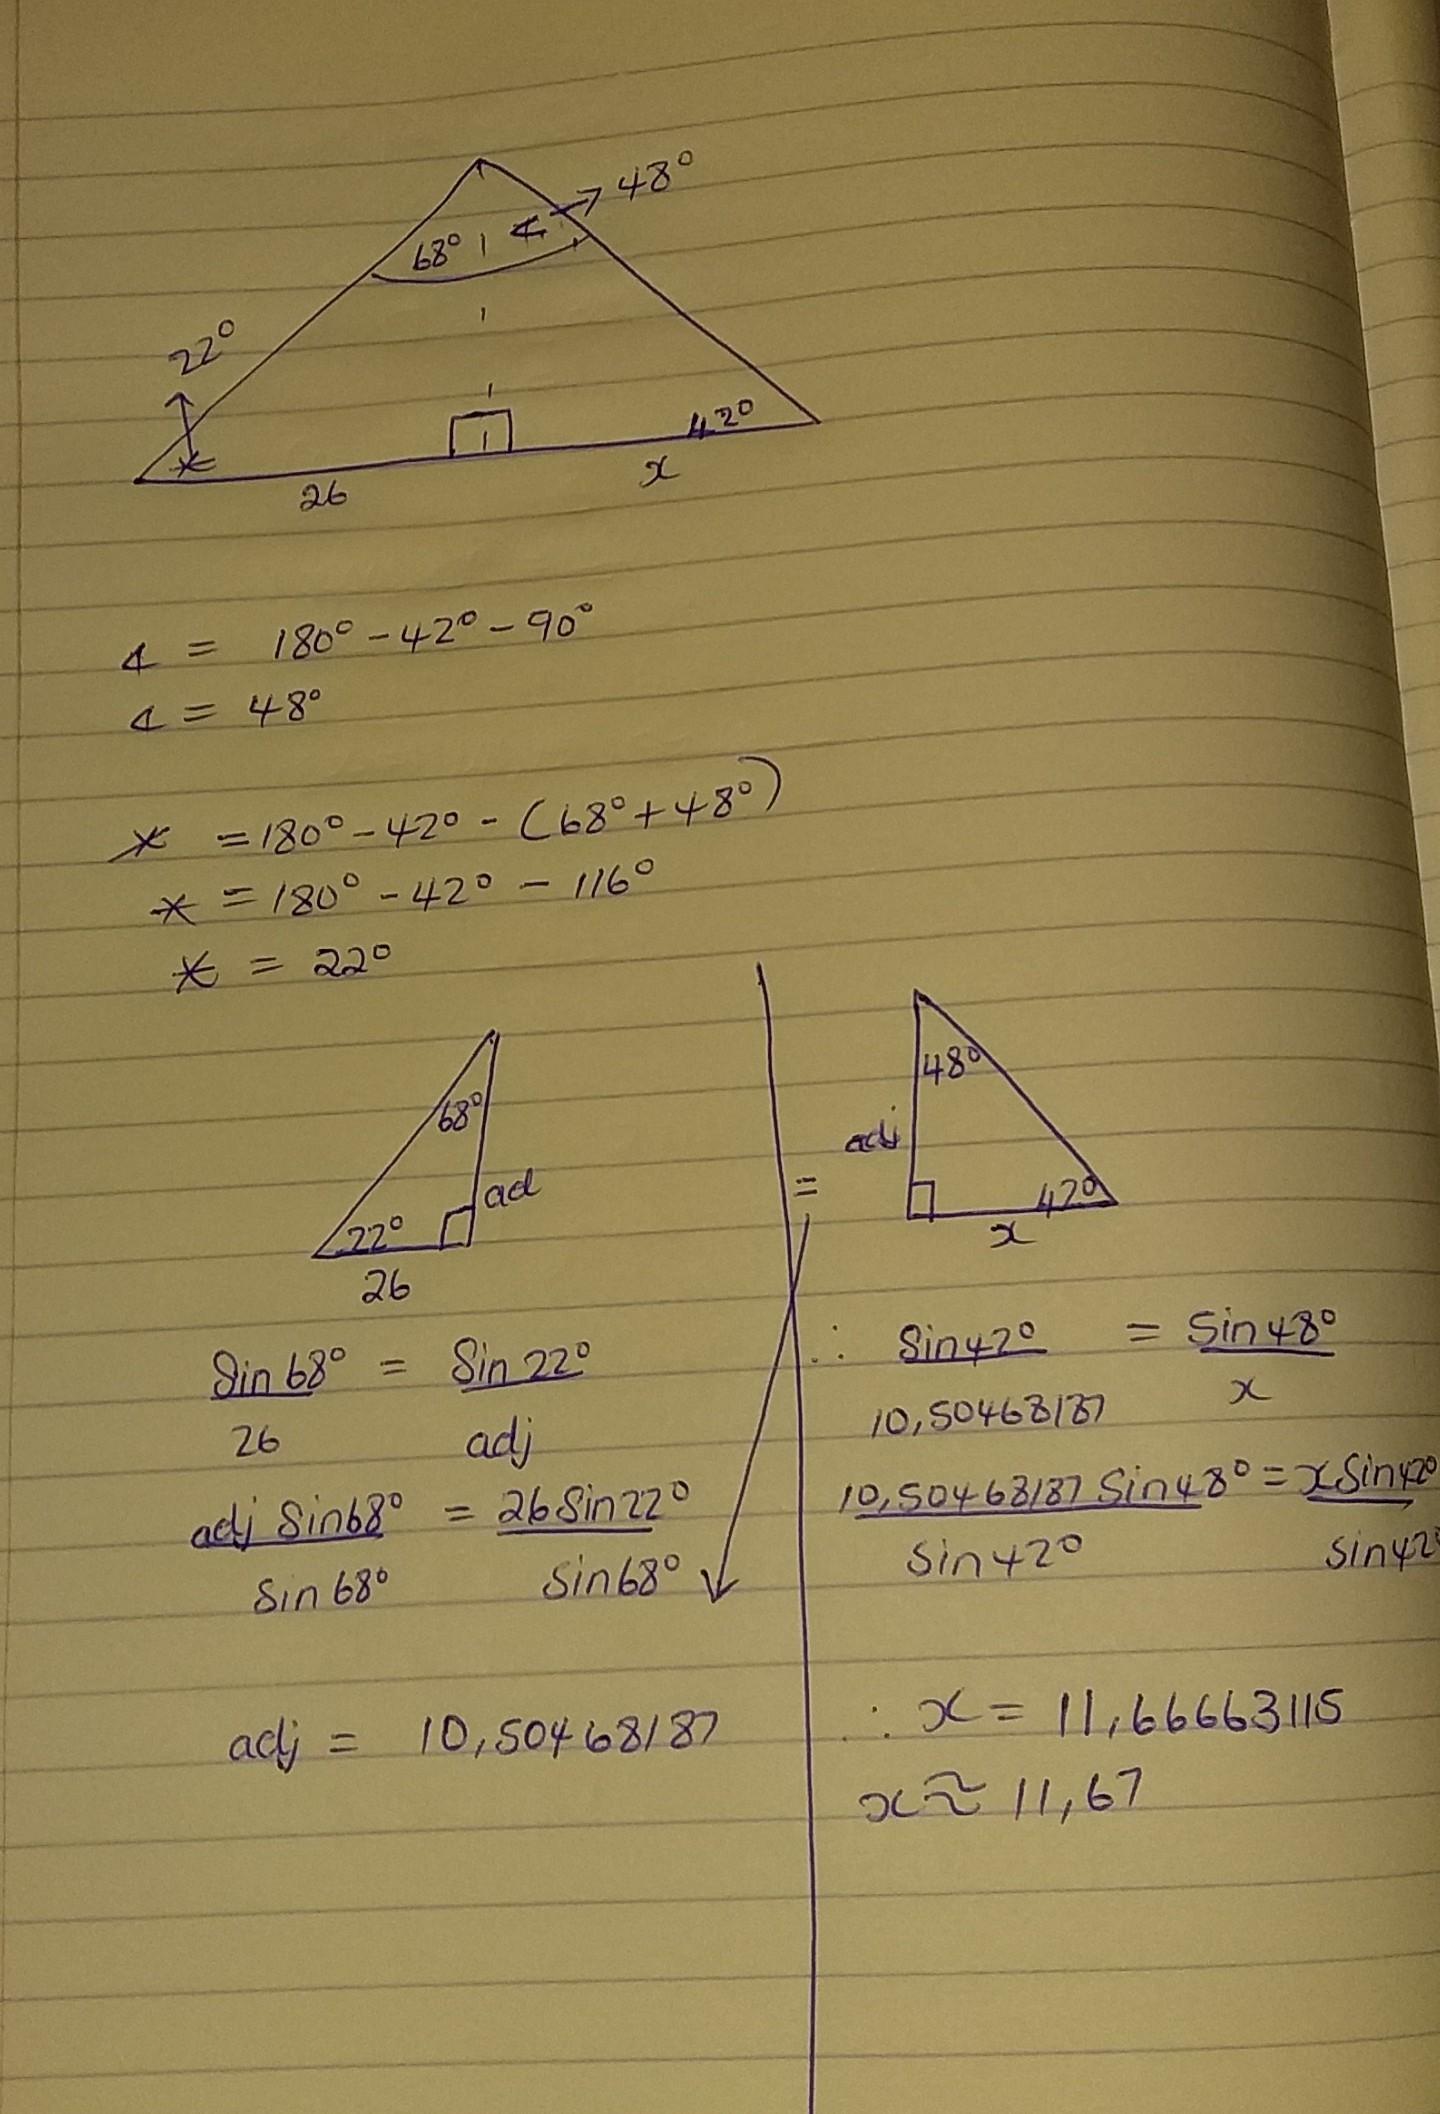 48°
68°
22°
42°
26
x
∢ = 180° - 42° - 90°
∢ = 48°
* = 180° - 42° - (68° + 48°)
* = 180° - 42° - 116°
* = 22°
68°
ad
22°
26
Sin 68° = Sin 22°
26 adj
adj Sin68° = 26Sin22°
Sin 68° Sin68°
adj = 10,50468187
=
48°
adj
42°
x
∴ Sin42° = Sin48°
10,50468187 x
10,50468187 Sin48° = xSin42°
Sin42° Sin42°
∴ x = 11,66663115
x ≈ 11,67